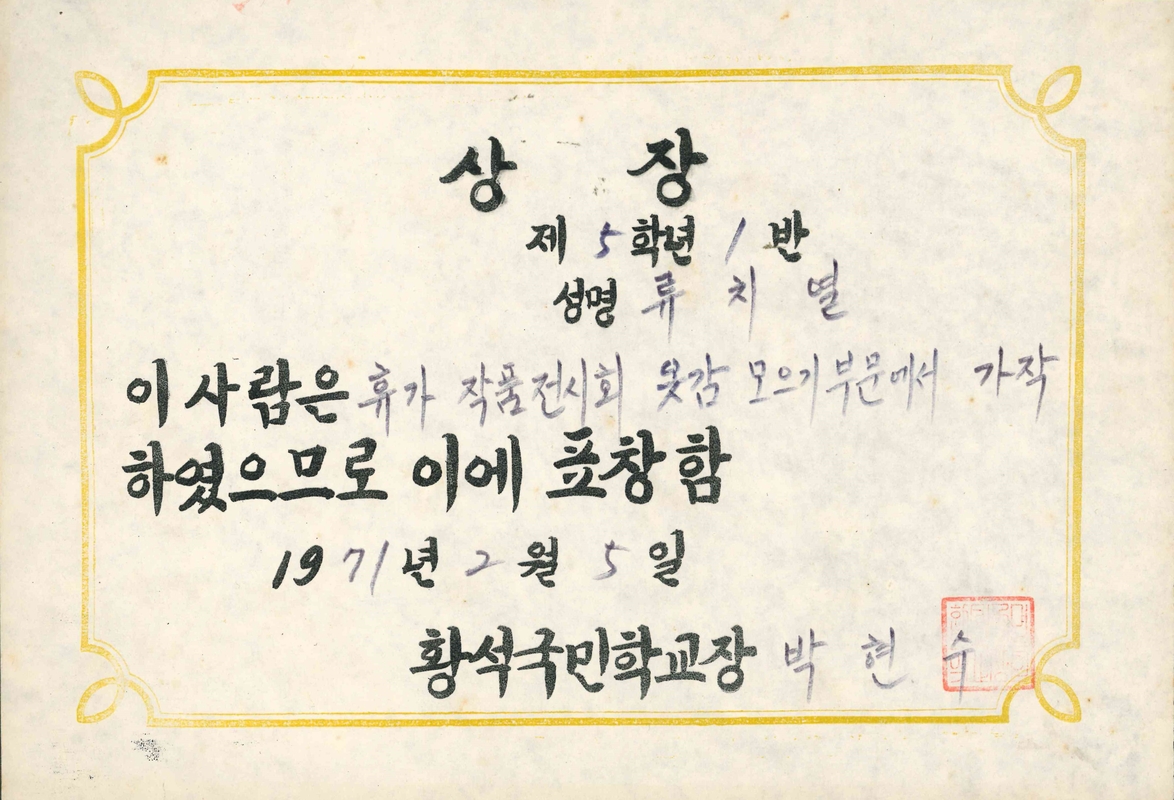 상 장
제 5 학년 1 반
성명 류 치 열
이 사람은 휴가 작품전시회 옷감 모으기부문에서 가작
하였으므로 이에 표창함
1971년 2월 5일
황석국민학교장 박 현 수